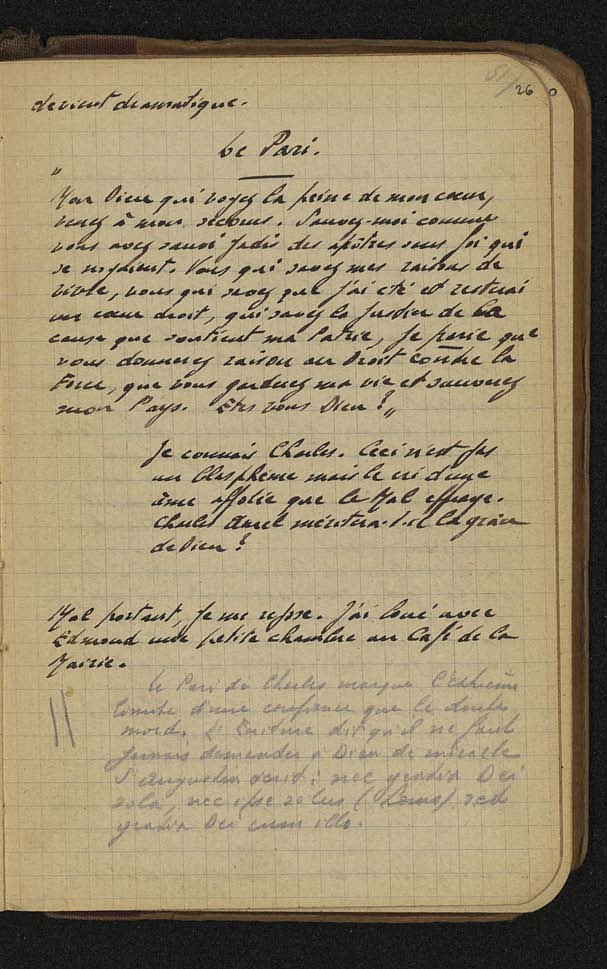 26
devient dramatique.
Le Pari.
"
Mon Dieu qui voyez la peine de mon cœur,
venez à mon secours. Sauvez-moi comme
vous avez sauvé jadis des apôtres sans foi qui
se noyaient. Vous qui savez mes raisons de
vivre, vous qui savez que j'ai été et resterai
un cœur droit, qui savez la justice de la
cause que soutient ma Patrie, je parie que
vous donnerez raison au Droit contre la
Force, que vous garderez ma vie et sauverez
mon Pays. Etes vous Dieu ? "
Je connais Charles. Ceci n'est pas
un blasphème mais le cri d'une
âme affolée que le Mal effraye.
Charles Aurel méritera-t-il la grâce
de Dieu ?
Mal portant, je me repose. J'ai loué avec
Edmond une petite chambre au Café de la
Mairie.
Le Pari de Charles marque l'extrême
limite d'une confiance que le doute
mord. L'Ecriture dit qu'il ne faut
jamais demander à Dieu de miracle
St Augustin écrit : nec gratia Dei
sola, nec ipse solus (homo) sed
gratia Dei cum illo.